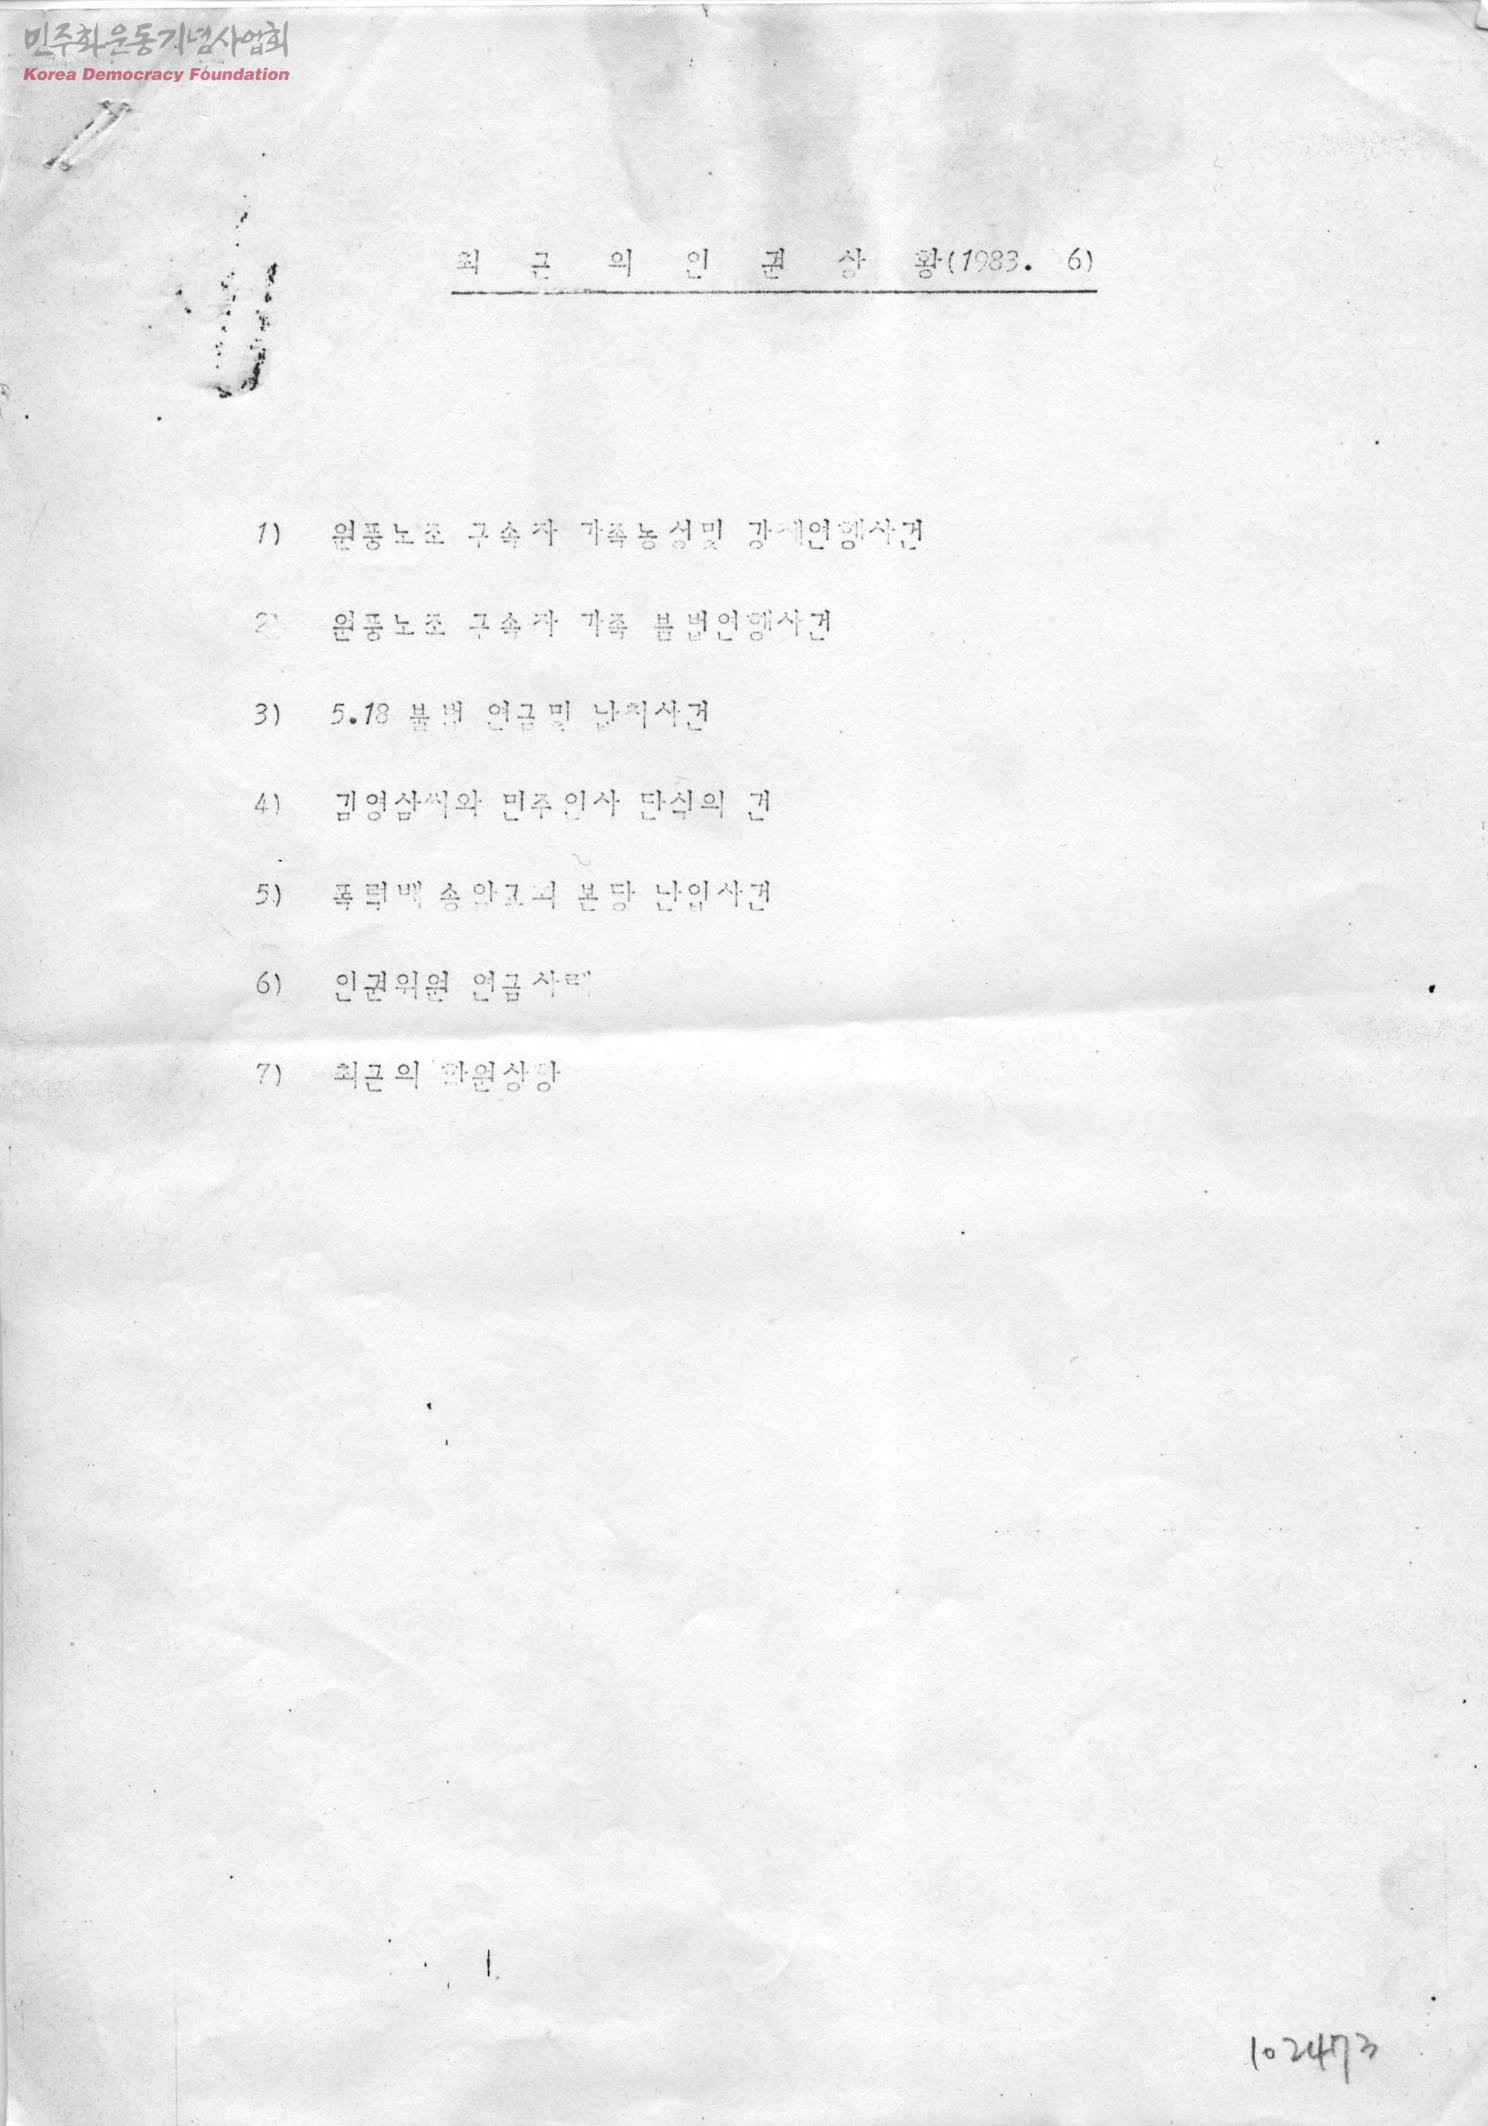 민주화운동기념사업회
Korea Democracy Foundation
최 근 의 인 권 상 황(1983. 6)
1) 원풍노조 구속자 가족농성및 강제연행사건
2) 원풍노조 구속자 가족 불법연행사건
3) 5.18 불법 연금및 납치사건
4) 김영삼씨와 민주인사 단식의 건
5) 폭력배 송암교회 본당 난입사건
6) 인권위원 연금사례
7) 최근의 학원상황
102473